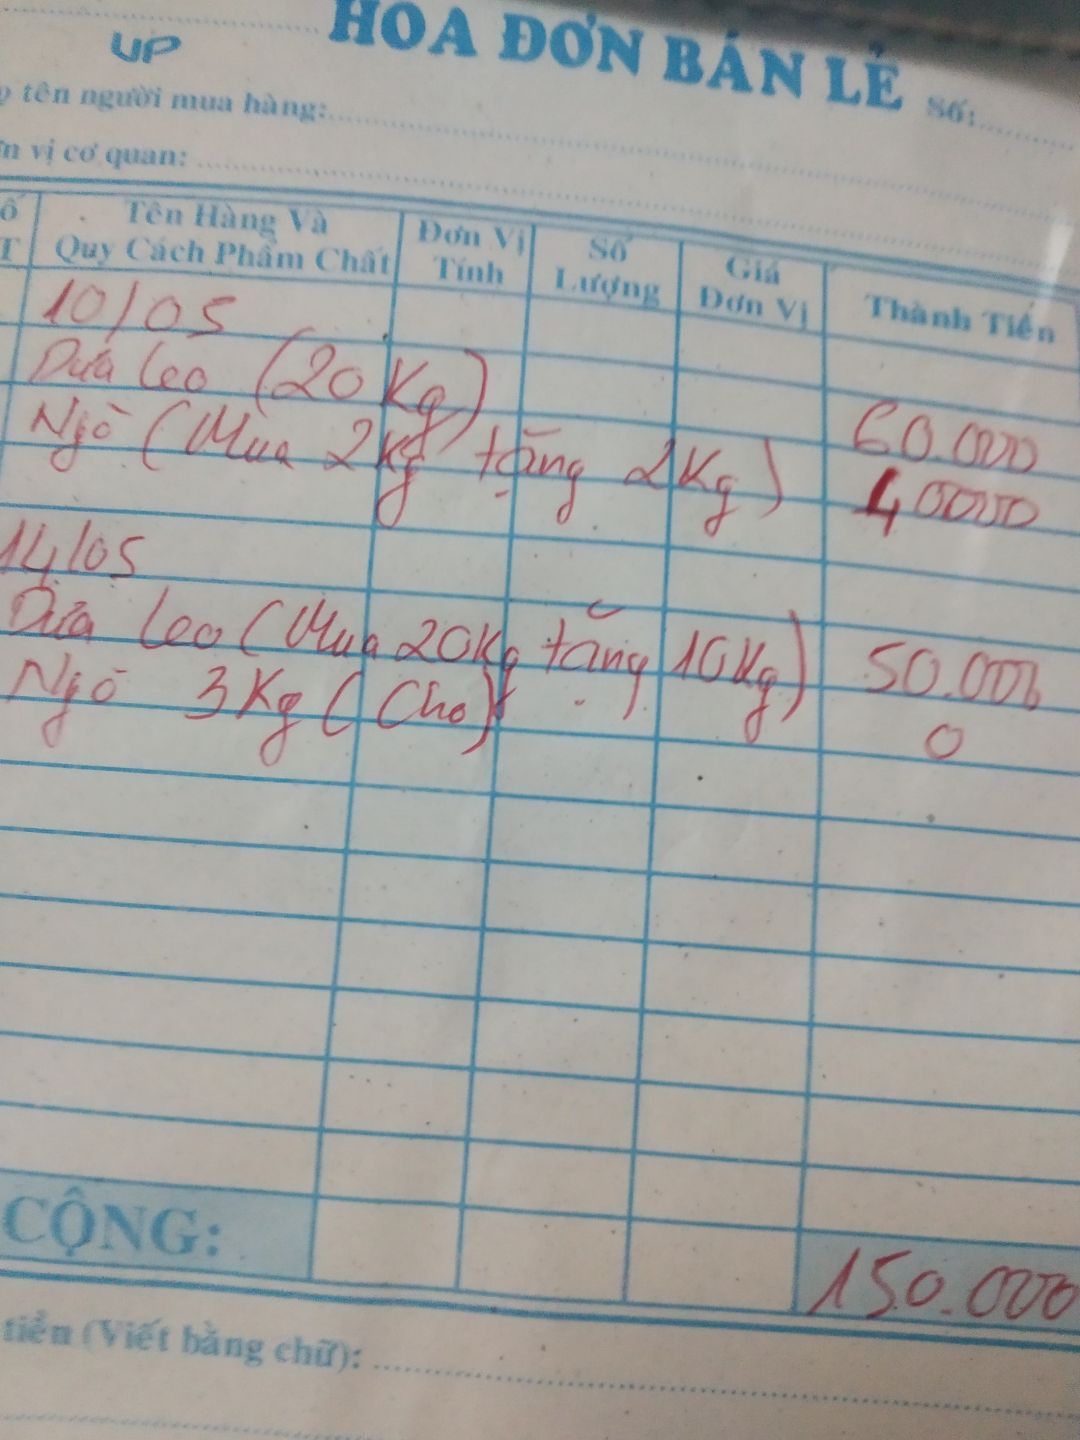 UP
HOÁ ĐƠN BÁN LẺ Số:
tên người mua hàng:
vị cơ quan:
Tên Hàng Và Quy Cách Phẩm Chất Đơn Vị Tính Số Lượng Giá Đơn Vị Thành Tiền
10/05
Dưa leo (20Kg) 60.000
Ngò (Mua 2kg tặng 2Kg) 40000
14/05
Dưa leo (Mua 20Kg tặng 10Kg) 50.000
Ngò 3Kg (Cho) 0
CỘNG: 150.000
tiền (Viết bằng chữ):